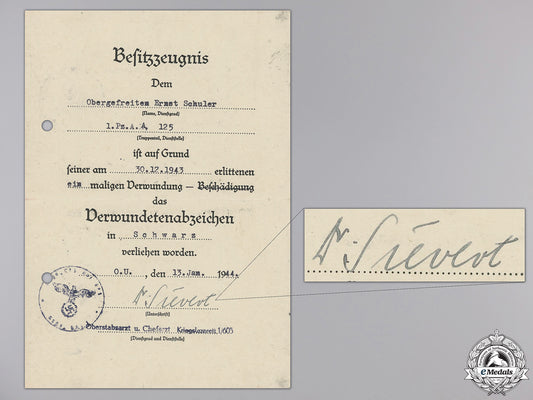 Besitzzeugnis
Dem
Obergefreiten Ernst Schuler
(Name, Dienstgrad)
1.Pz.A.A. 125
(Truppenteil, Dienststelle)
ist auf Grund
seiner am 30.12.1943 erlittenen
ein maligen Verwundung – Beschädigung
das
Verwundetenabzeichen
in Schwarz
verliehen worden.
O.U. , den 13.Jan. 1944.
Dr. Sievert
(Unterschrift)
Oberstabsarzt u. Chefarzt Kriegslazarett 1/605
(Dienstgrad und Dienststelle)
Dr. Sievert
eMedals